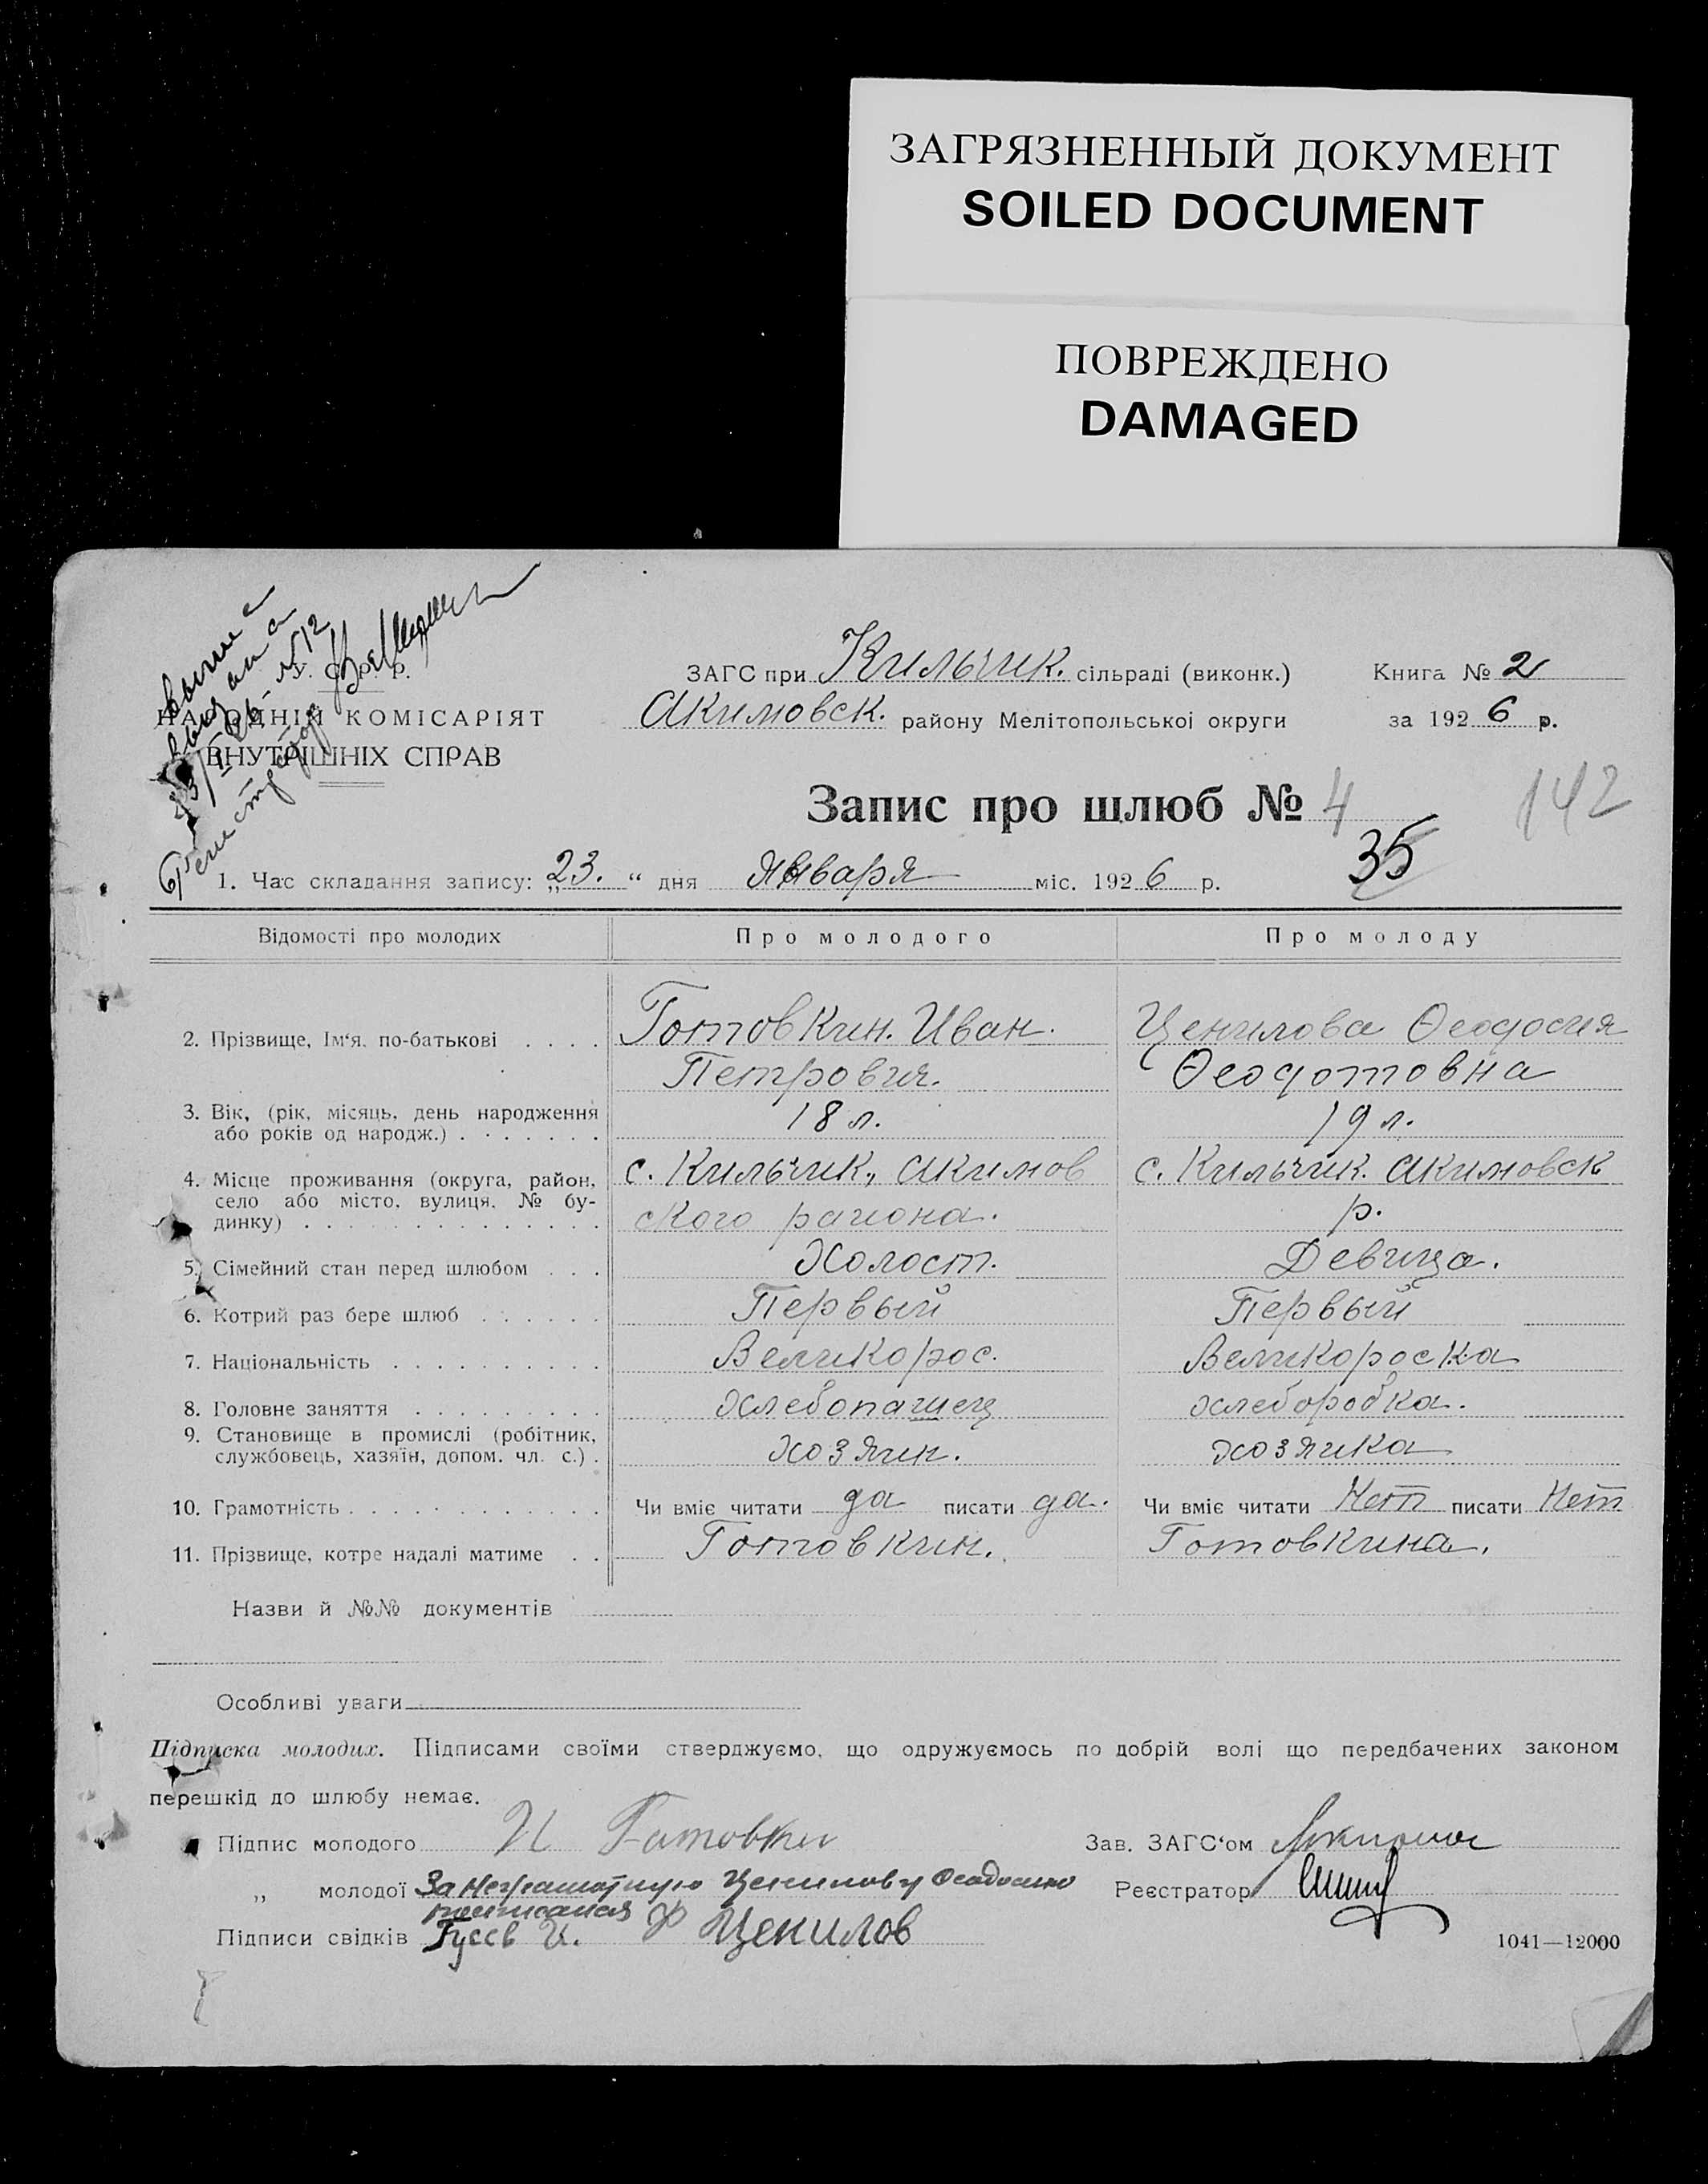 ЗАГРЯЗНЕННЫЙ ДОКУМЕНТ
SOILED DOCUMENT
ПОВРЕЖДЕНО
DAMAGED
У. С. Р. Р.
НАРОДНІЙ КОМІСАРІЯТ
ВНУТРІШНІХ СПРАВ
ЗАГС при Кильчик. сільраді (виконк.)
Акимовск. району Мелітопольської округи
Книга № 2
за 1926 р.
Запис про шлюб № 4
142
35
1. Час складання запису: „23.“ дня Января міс. 1926 р.
Відомості про молодих Про молодого Про молоду
2. Прізвище, Ім'я, по-батькові . . . . Готовкин. Иван. Ценилова Ѳеодосия
Петрович. Ѳеодотовна
3. Вік, (рік, місяць, день народження 18 л. 19 л.
або років од народж.) . . . . . . .
4. Місце проживання (округа, район, с. Кильчик, Акимов с. Кильчик. Акимовск
село або місто, вулиця, № бу-
динку) . . . . . . . . . . . . . . ского раиона. р.
5. Сімейний стан перед шлюбом . . . Холост. Девица.
6. Котрий раз бере шлюб . . . . . . Первый Первый
7. Національність . . . . . . . . . . Великорос. Великороска
8. Головне заняття . . . . . . . . . Хлебопашец хлеборобка.
9. Становище в промислі (робітник,
службовець, хазяїн, допом. чл. с.) . Хозяин. хозяика
10. Грамотність . . . . . . . . . . . . Чи вміє читати да писати да. Чи вміє читати Нет писати Нет
11. Прізвище, котре надалі матиме . . Готовкин. Готовкина.
Назви й №№ документів
Особливі уваги
Підписка молодих. Підписами своїми стверджуємо, що одружуємось по добрій волі що передбачених законом
перешкід до шлюбу немає.
Підпис молодого И Гатовкин Зав. ЗАГС'ом
„ молодої За неграмотную Ценилову Феодосию Реєстратор
росписался
Підписи свідків Гусев И. Ф Ценилов
1041—12000